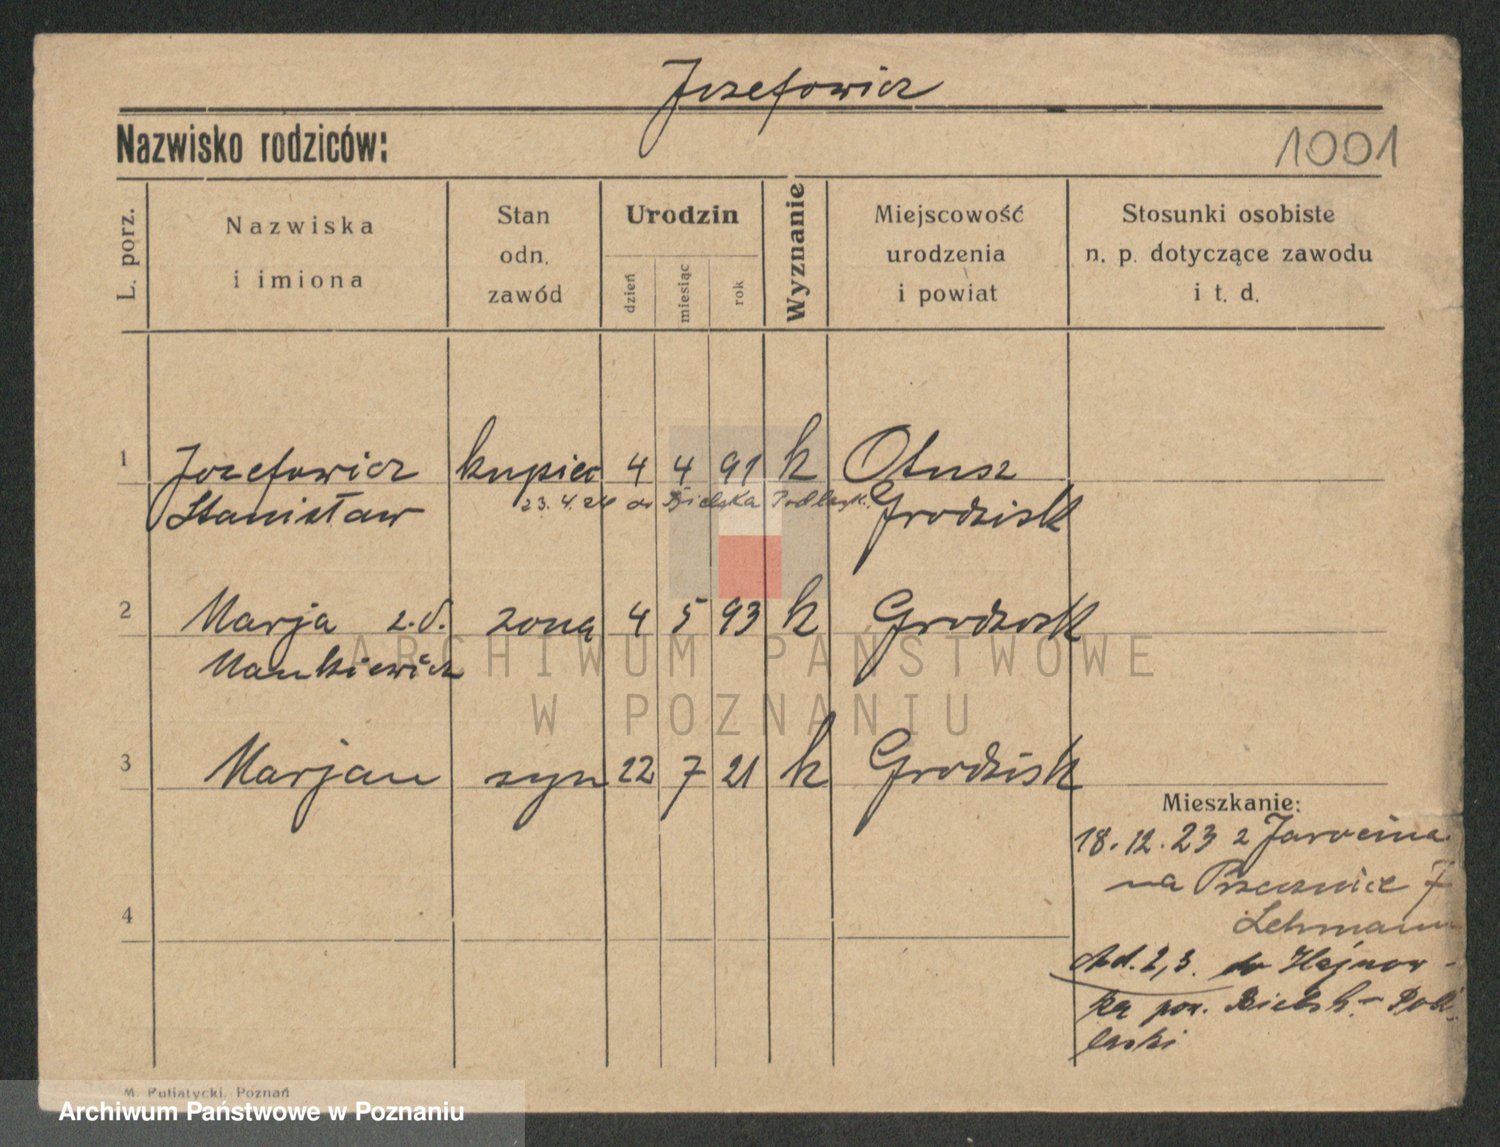 Jozefowicz
Nazwisko rodziców:
1001
L. porz.
Nazwiska
i imiona
Stan
odn.
zawód
Urodzin
dzień
miesiąc
rok
Wyznanie
Miejscowość
urodzenia
i powiat
Stosunki osobiste
n. p. dotyczące zawodu
i t. d.
1 Jozefowicz kupiec 4 4 91 k Otusz
Stanisław 23.4.24 do Bielska Podlask. Grodzisk
2 Marja z.d. żona 4 5 93 k Grodzisk
Mankiewicz
3 Marjan syn 22 7 21 k Grodzisk
Mieszkanie:
18.12.23 z Jarocina
na Przecznice 7
Lehmann
4
Ad. 2,3. do Hajnow-
ka pow. Bielsk.- Pod
laski
M. Putiatycki, Poznań
ARCHIWUM PAŃSTWOWE
W POZNANIU
Archiwum Państwowe w Poznaniu